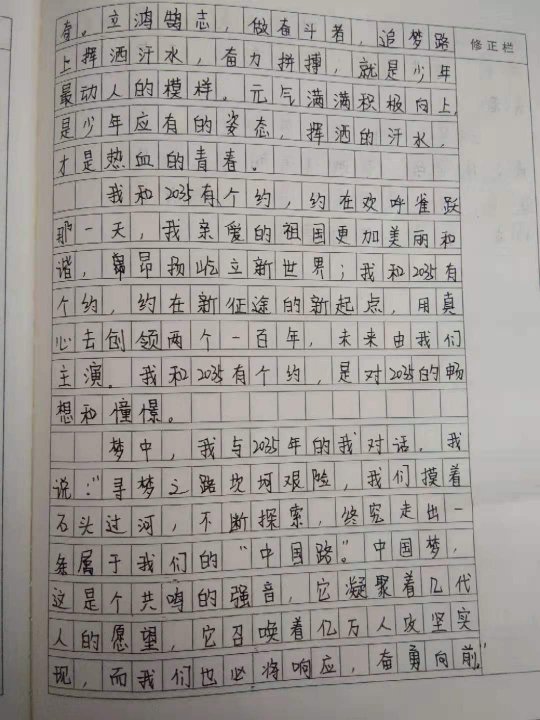 春。立鸿鹄志，做奋斗者，追梦路
修正栏
上挥洒汗水，奋力拼搏，就是少年
最动人的模样。元气满满积极向上，
是少年应有的姿态，挥洒的汗水，
才是热血的青春。
我和2035有个约，约在欢呼雀跃
那一天，我亲爱的祖国更加美丽和
谐，昂昂扬屹立新世界；我和2035有
个约，约在新征途的新起点，用真
心去创领两个一百年，未来由我们
主演。我和2035有个约，是对2035的畅
想和憧憬。
梦中，我与2035年的我对话。我
说："寻梦之路坎坷艰险，我们摸着
石头过河，不断探索，终究走出一
条属于我们的"中国路"。中国梦，
这是个共鸣的强音，它凝聚着几代
人的愿望，它召唤着亿万人攻坚实
现，而我们也必将响应，奋勇向前。"